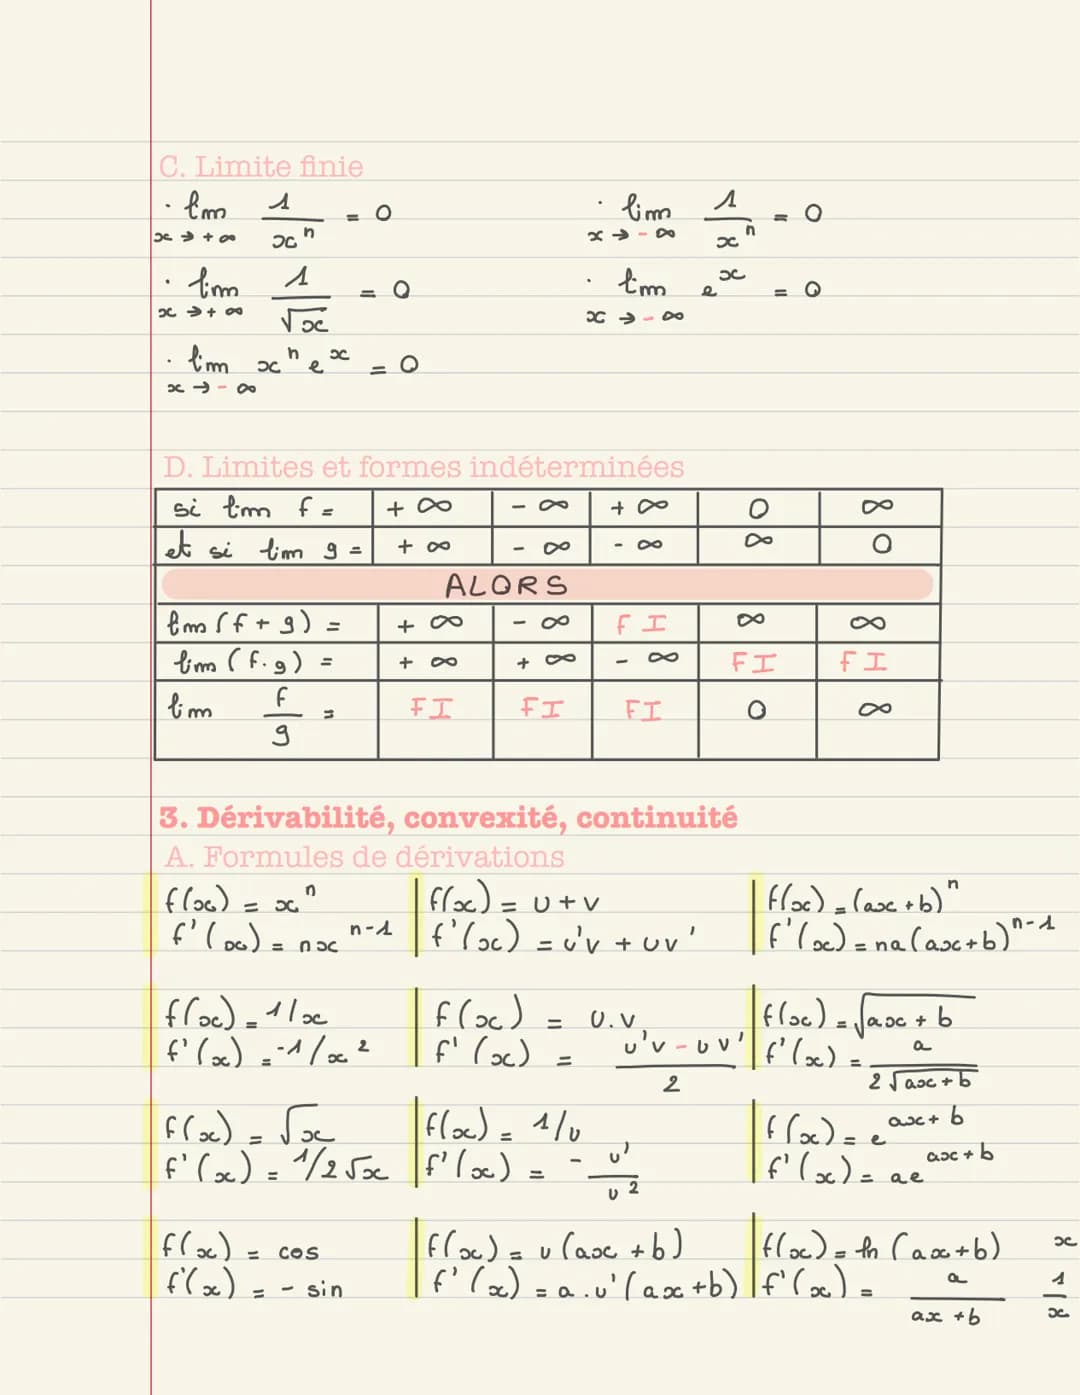 C. Limite finie
· lim x→+∞ 1/xⁿ = 0
· lim x→-∞ 1/xⁿ = 0
· lim x→+∞ 1/√x = 0
· lim x→-∞ eˣ = 0
· lim x→-∞ xⁿeˣ = 0
D. Limites et formes indéterminées
si lim f = +∞ -∞ +∞ 0 ∞
et si lim g = +∞ -∞ -∞ ∞ 0
ALORS
lim (f+g) = +∞ -∞ FI ∞ ∞
lim (f.g) = +∞ +∞ -∞ FI FI
lim f/g = FI FI FI 0 ∞
3. Dérivabilité, convexité, continuité
A. Formules de dérivations
f(x) = xⁿ
f'(x) = nxⁿ⁻¹
f(x) = u+v
f'(x) = u'v + uv'
f(x) = (ax+b)ⁿ
f'(x) = na(ax+b)ⁿ⁻¹
f(x) = 1/x
f'(x) = -1/x²
f(x) = u.v
f'(x) = (u'v - uv')/2
f(x) = √(ax+b)
f'(x) = a/(2√(ax+b))
f(x) = √x
f'(x) = 1/2√x
f(x) = 1/u
f'(x) = - u'/u²
f(x) = e^(ax+b)
f'(x) = ae^(ax+b)
f(x) = cos
f'(x) = - sin
f(x) = u(ax+b)
f'(x) = a.u'(ax+b)
f(x) = ln(ax+b)
f'(x) = a/(ax+b)
x
1/x